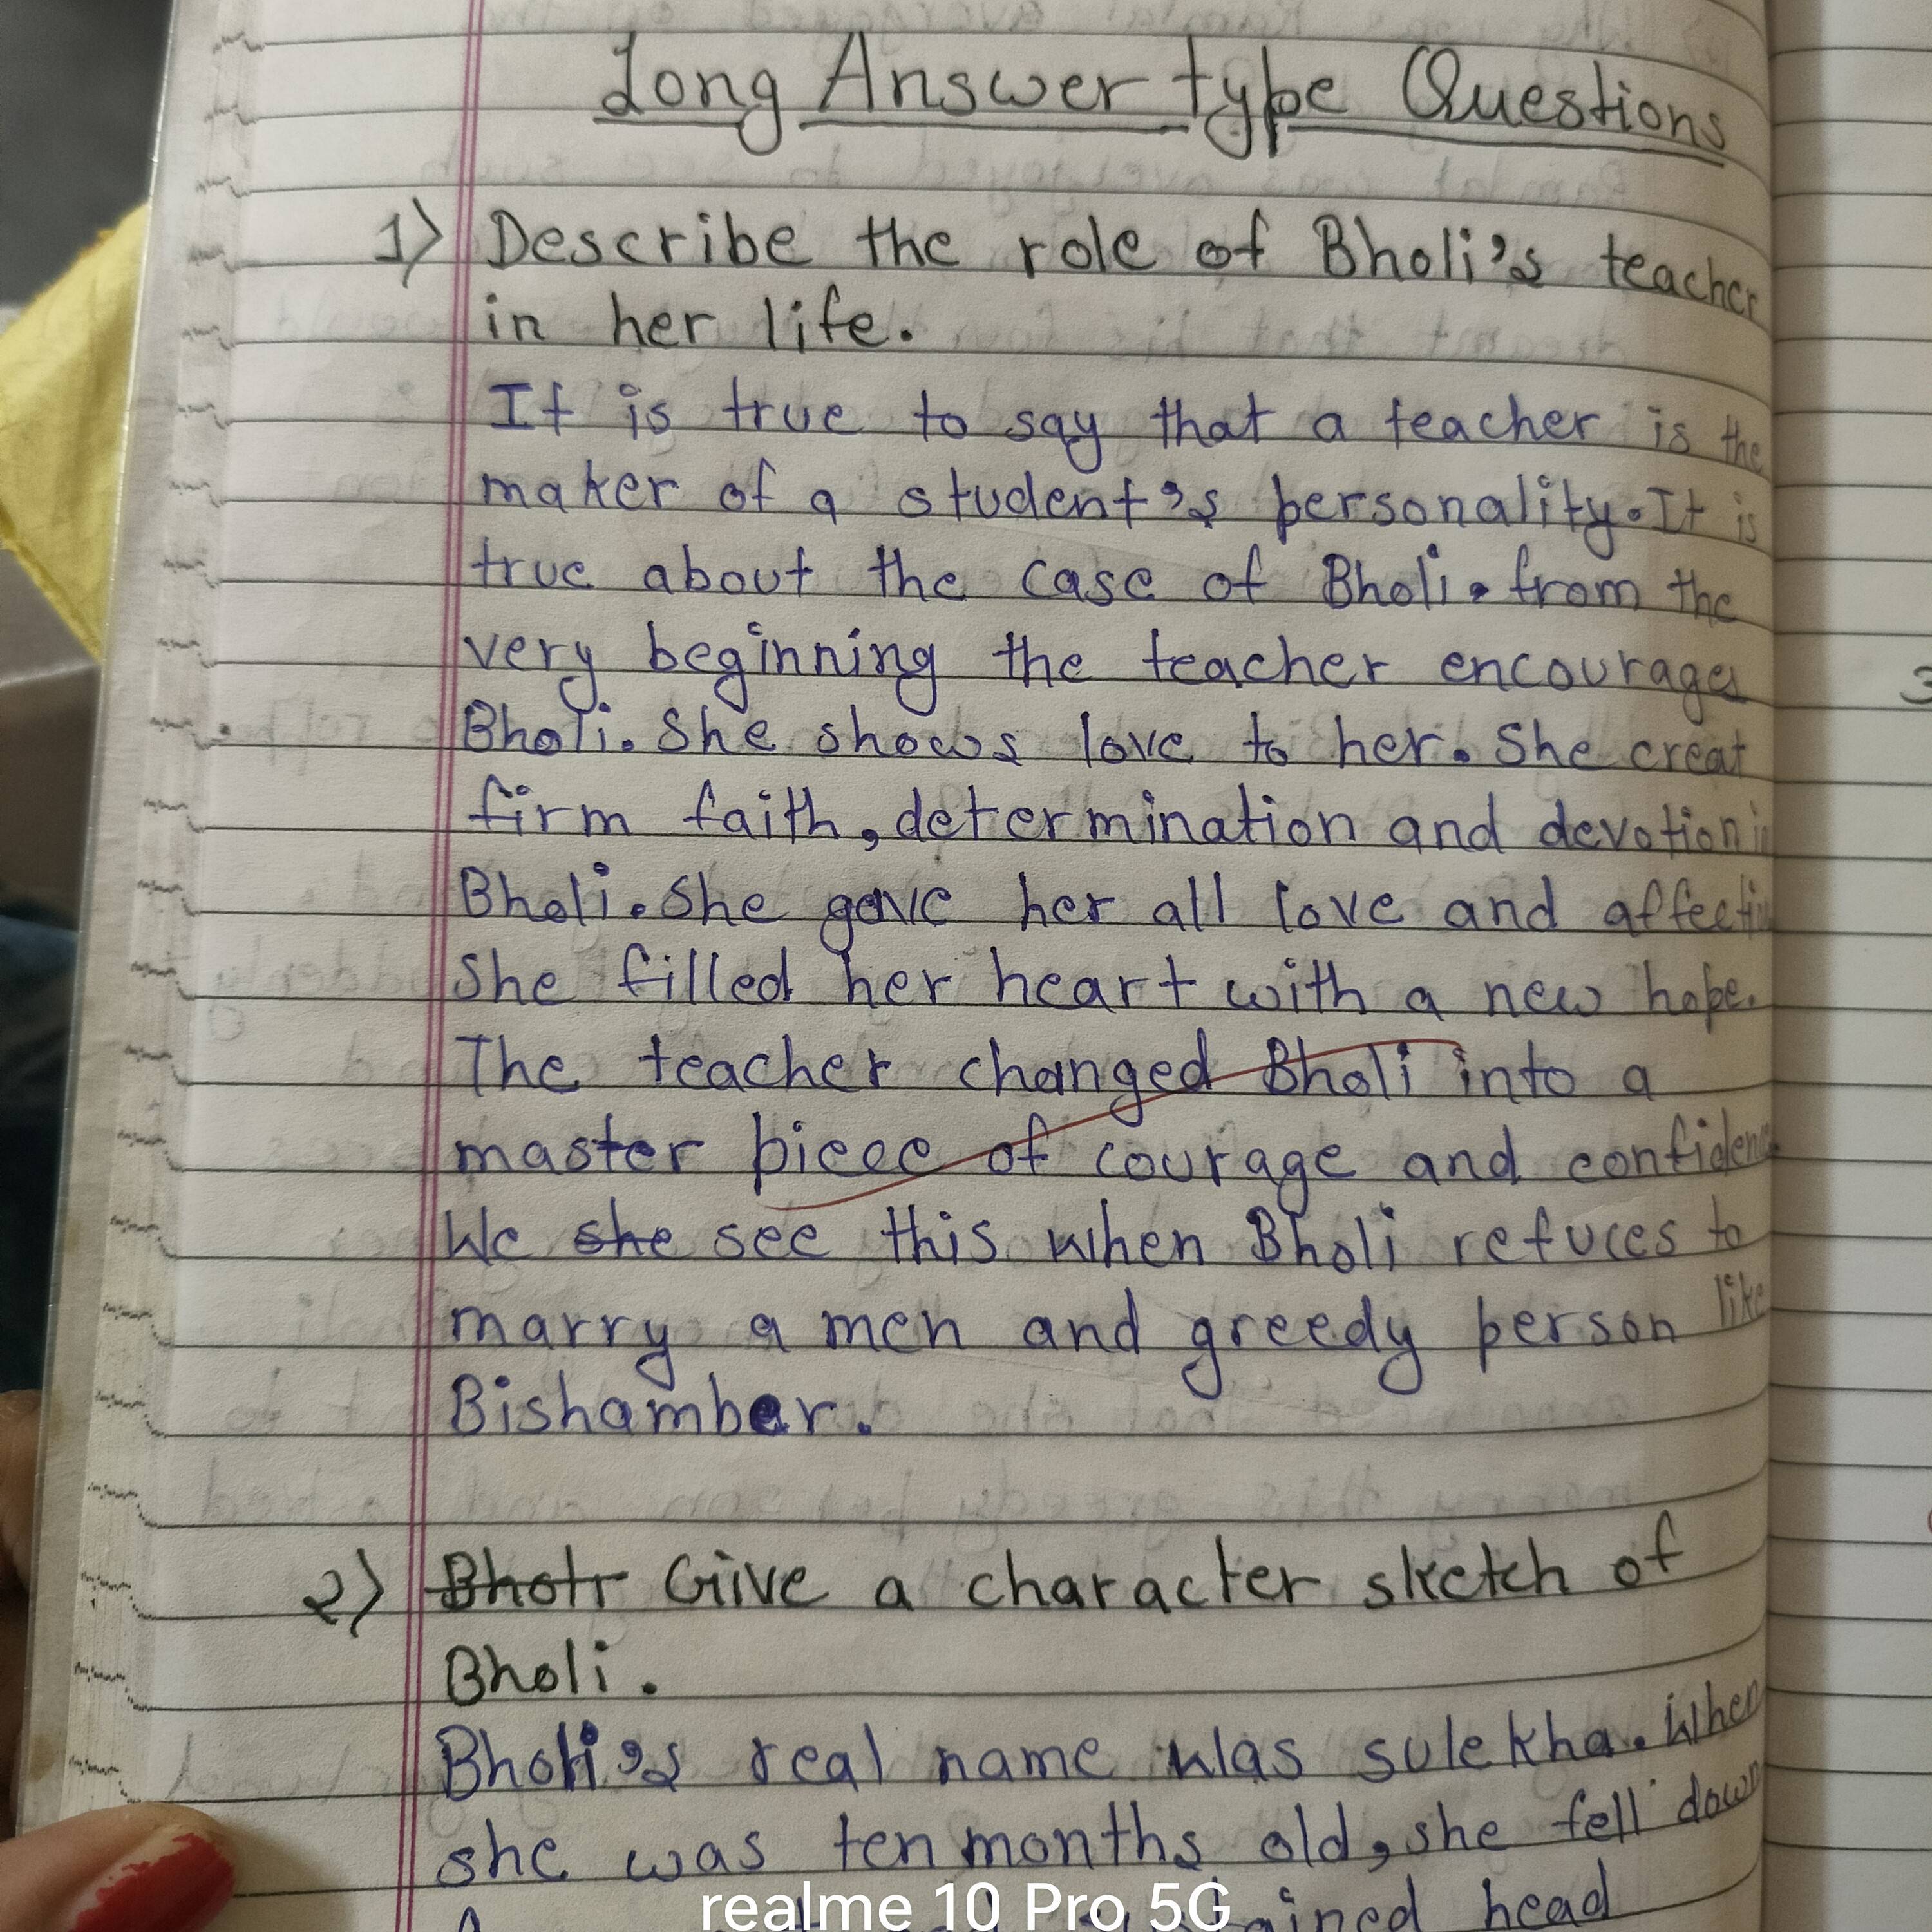 Long Answer type Questions
1) Describe the role of Bholi's teacher
in her life.
It is true to say that a teacher is the
maker of a student's personality. It is
true about the case of Bholi. from the
very beginning the teacher encourages
Bholi. She shows love to her. She creat
firm faith, determination and devotion in
Bholi. She gave her all love and affectin
She filled her heart with a new hope.
The teacher changed Bholi into a
master piece of courage and confidenc
We she see this when Bholi refuces to
marry a men and greedy person like
Bishamber.
2) Bholi Give a character sketch of
Bholi.
Bholi's real name was sulekha. When
she was ten months old, she fell down
head
realme 10 Pro 5G
3